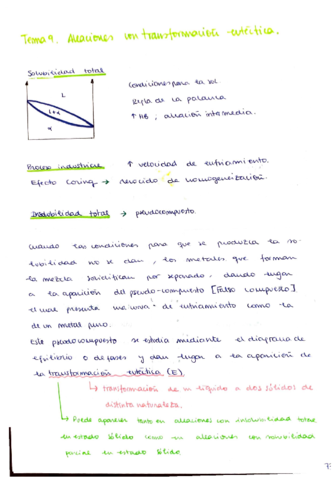 Tema 9. Aleaciones con transformación eutéctica.
Solubilidad total
Condiciones para la sol.
L
Regla de la palanca
L+α
↑ HB, aleación intermedia.
α
Proceso industrial
↑ velocidad de enfriamiento.
Efecto Coring → recocido de homogeneización.
Insolubilidad total → pseudocompuesto.
Cuando las condiciones para que se produzca la so-
lubilidad no se dan, los metales que forman
la mezcla solidifican por separado, dando lugar
a la aparición del pseudo-compuesto [Falso compuesto]
el cual presenta una curva de enfriamiento como la
de un metal puro.
Este pseudocompuesto se estudia mediante el diagrama de
equilibrio o de fases y dan lugar a la aparición de
la transformación eutéctica (E)
→ transformación de un líquido a dos sólidos de
distinta naturaleza.
→ Puede aparecer tanto en aleaciones con insolubilidad total
en estado sólido como en aleaciones con solubilidad
parcial en estado sólido